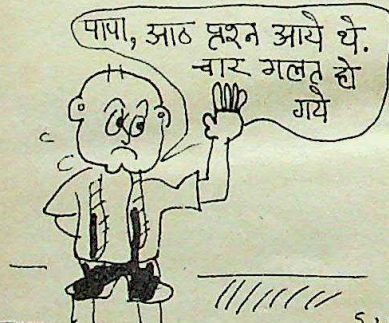 पापा, आठ प्रश्न आये थे.
चार गलत हो
गये